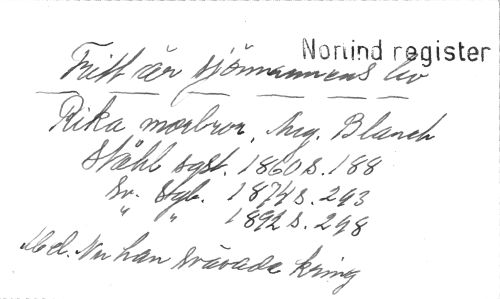 Norlind register
Fritt är sjömannens liv
Rika morbror, Aug. Blanch
Ståhl sgst. 1860 s. 188
Sv. sgb. 1874 s. 293
" " 1892 s. 298
Mel. Nu han svävade kring